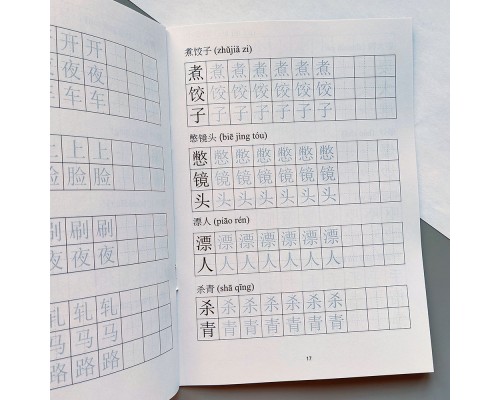 开 开
夜 夜
车 车
上 上
脸 脸
刷 刷
夜 夜
轧 轧
马 马
路 路
煮饺子 (zhǔjiǎ zi)
煮 煮 煮 煮 煮 煮 煮
饺 饺 饺 饺 饺 饺 饺
子 子 子 子 子 子 子
憋镜头 (biē jìng tóu)
憋 憋 憋 憋 憋 憋 憋
镜 镜 镜 镜 镜 镜 镜
头 头 头 头 头 头 头
漂人 (piāo rén)
漂 漂 漂 漂 漂 漂 漂
人 人 人 人 人 人 人
杀青 (shā qīng)
杀 杀 杀 杀 杀 杀 杀
青 青 青 青 青 青 青
17